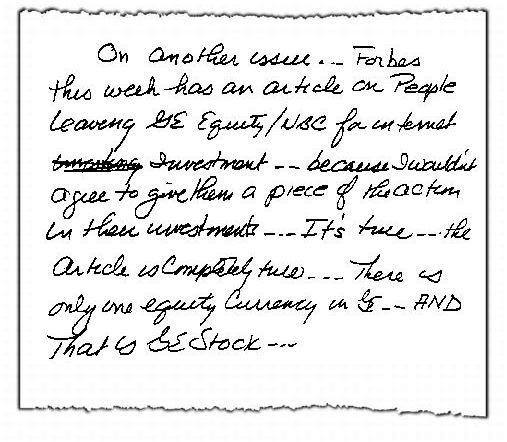 On another issue... Forbes
this week has an article on People
leaving GE Equity/NBC for internet
investment -- because I wouldn't
agree to give them a piece of the action
in their investments ... It's true -- the
Article is Completely true... There is
only one equity Currency in GE -- AND
That is GE Stock ---